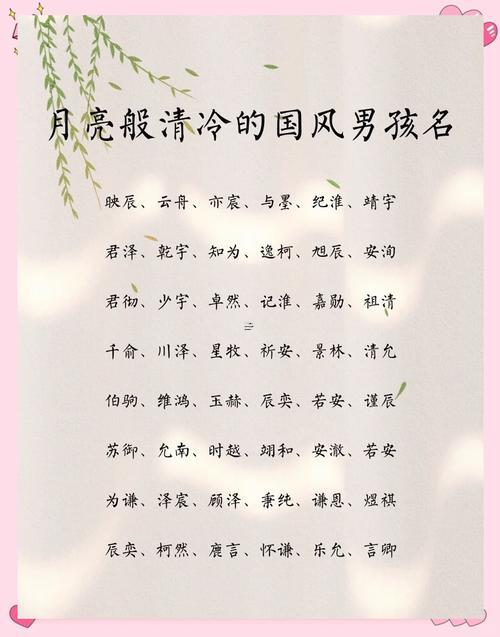 月亮般清冷的国风男孩名
映辰、云舟、亦宸、与墨、纪淮、靖宇
君泽、乾宇、知为、逸柯、旭辰、安洵
君彻、少宇、卓然、记淮、嘉勋、祖清
千俞、川泽、星牧、祈安、景林、清允
伯驹、维鸿、玉赫、辰奕、若安、谨辰
苏御、允南、时越、翊和、安澈、若安
为谦、泽宸、顾泽、秉纯、谦恩、煜祺
辰奕、柯然、鹿言、怀谦、乐允、言卿